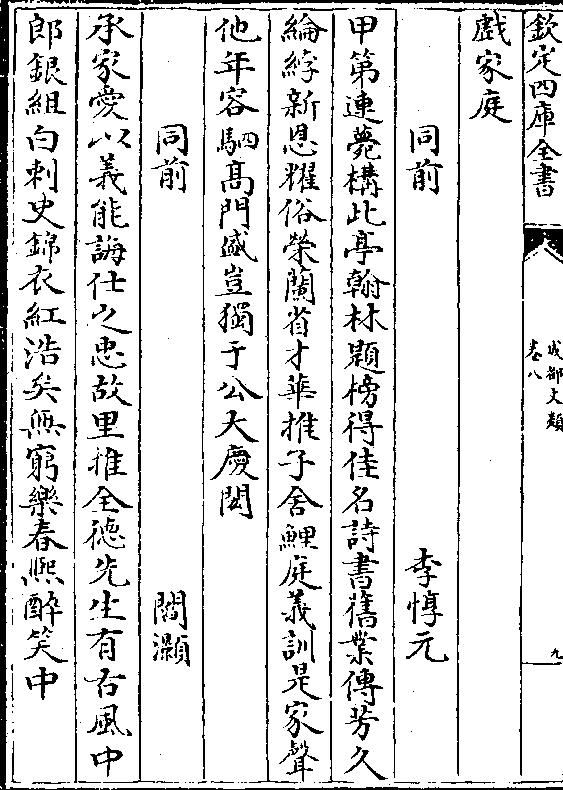 欽定四庫全書
成都文類
卷八
九
戲家庭
同前　李惇元
甲第連甍構此亭翰林題榜得佳名詩書舊業傳芳久
綸綍新恩耀俗榮蘭省才華推子舍鯉庭義訓是家聲
他年容駟髙門盛豈獨于公大慶閎
同前　閻灝
承家愛以義能誨仕之忠故里推全德先生有古風中
郎銀組白刺史錦衣紅浩矣無窮樂春熈醉笑中